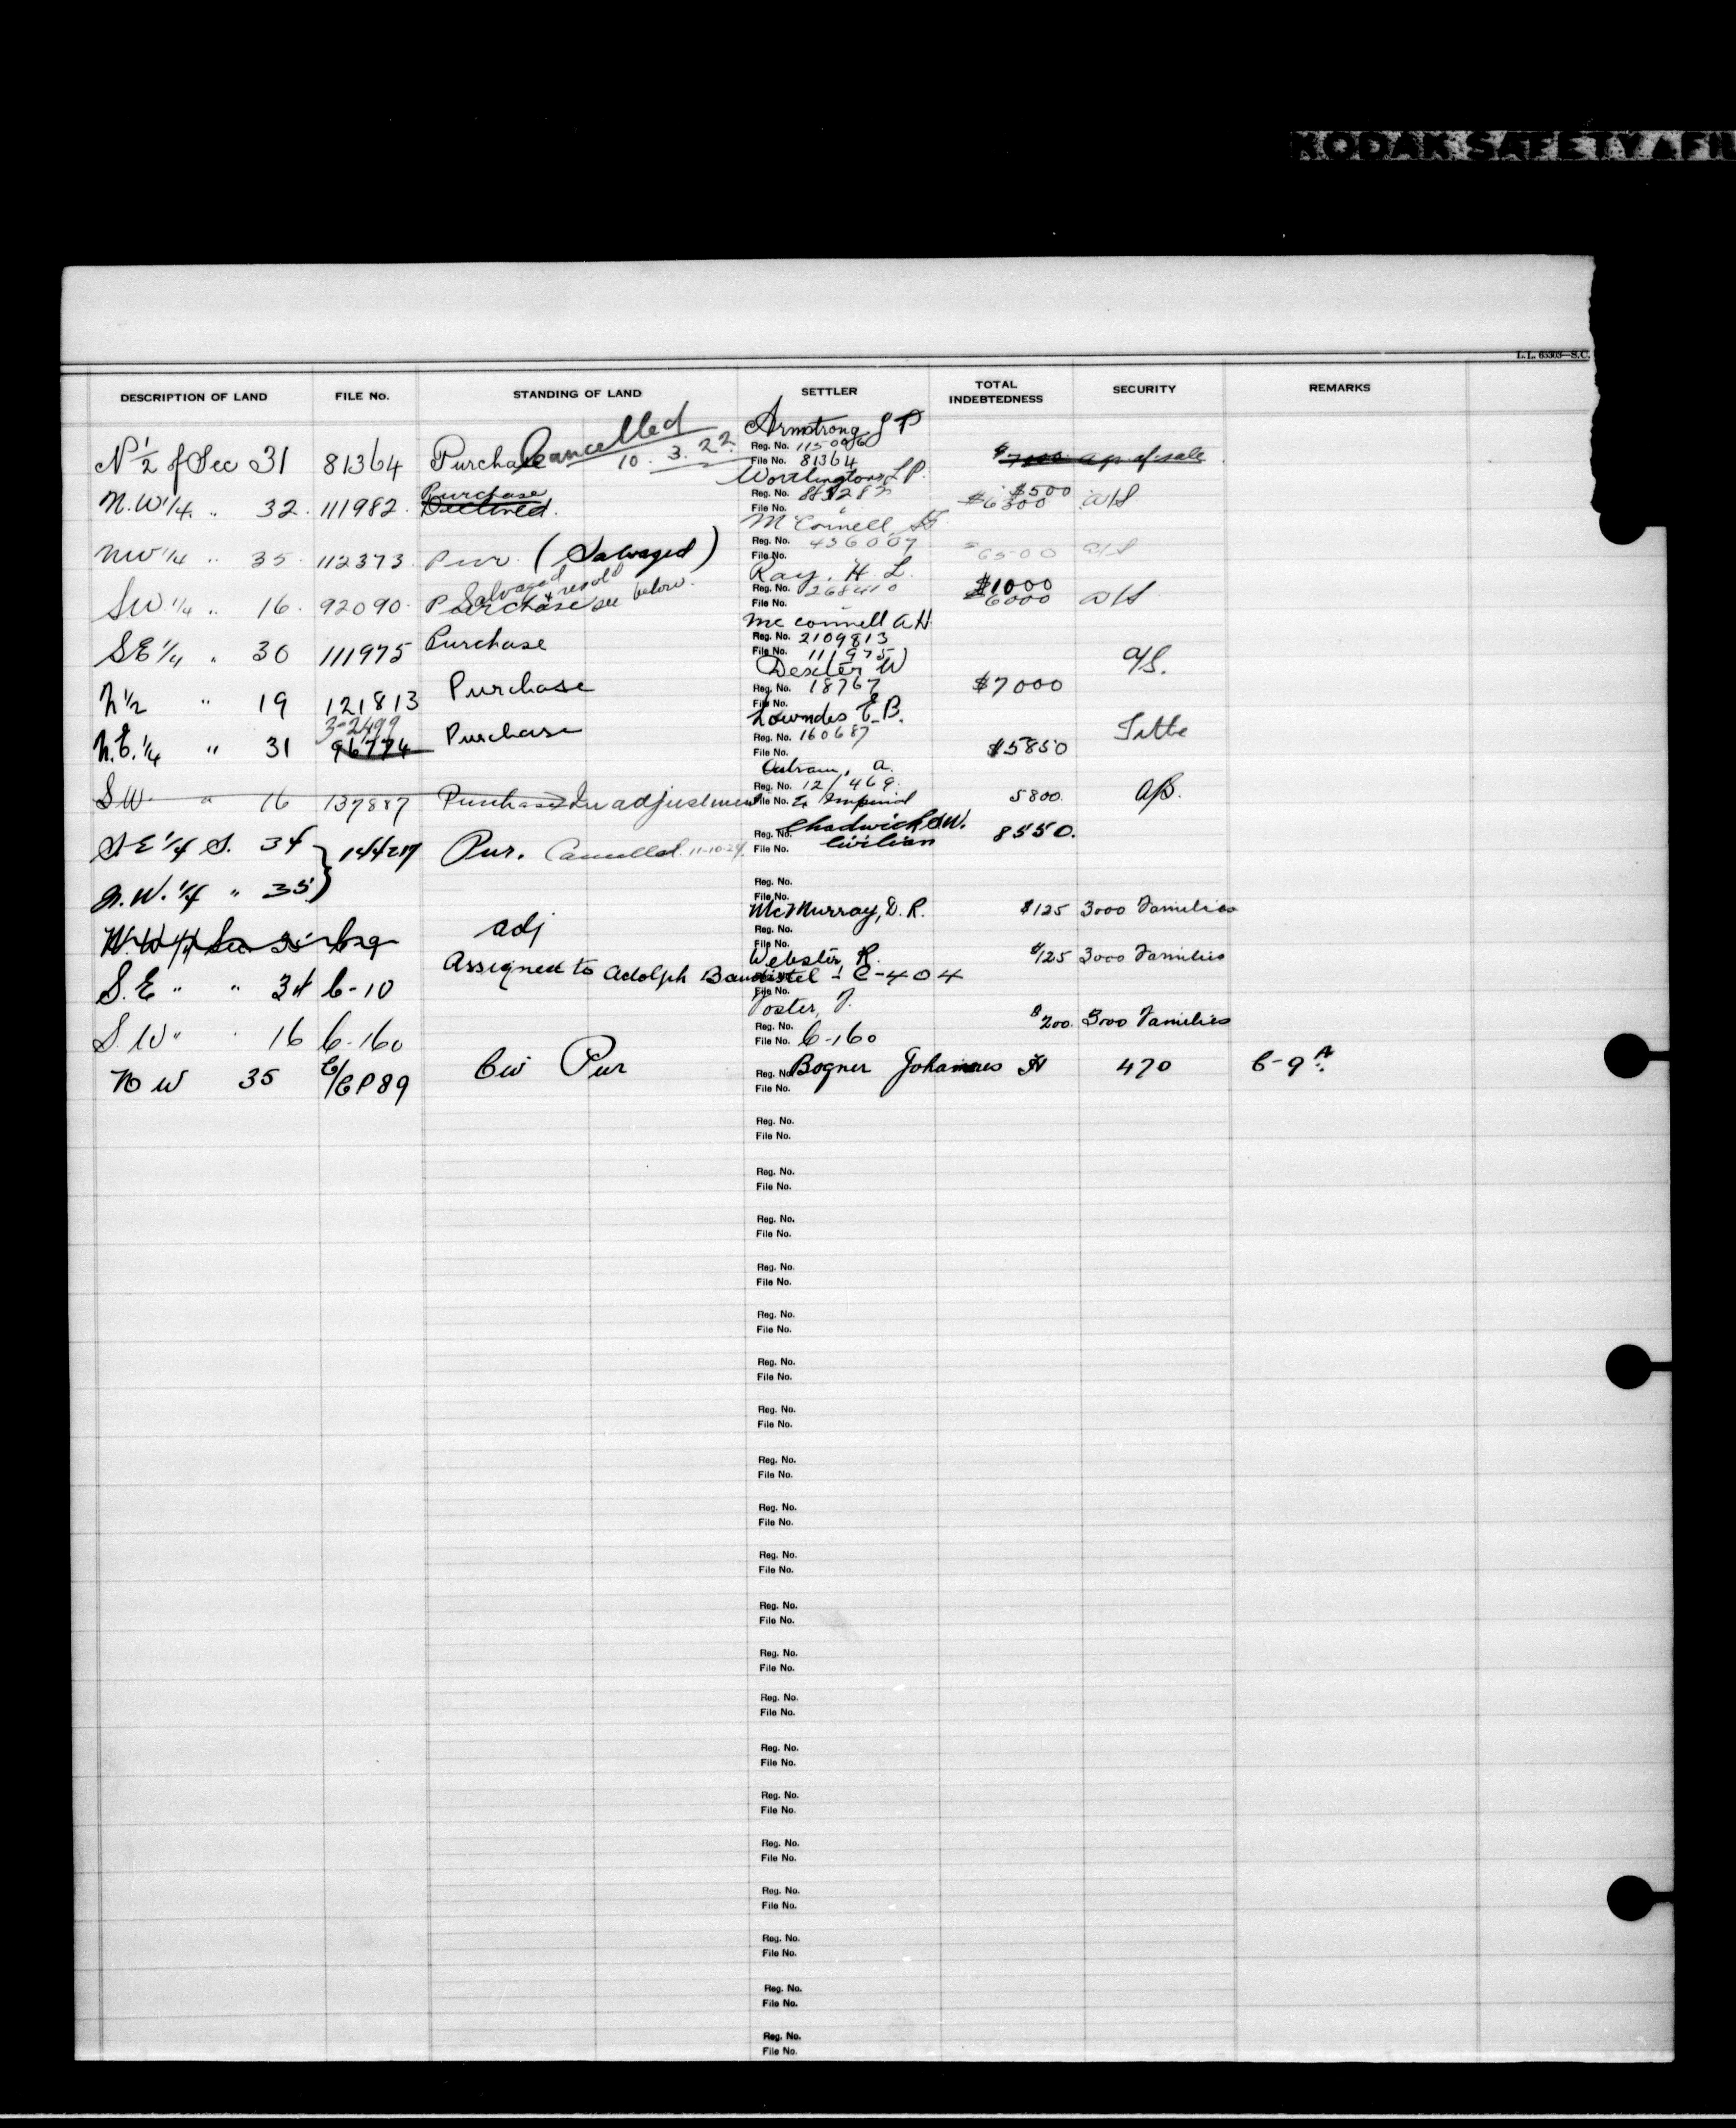 KODAK SAFETY FIL
L.L. 65303—S.C.
DESCRIPTION OF LAND FILE No. STANDING OF LAND SETTLER TOTAL INDEBTEDNESS SECURITY REMARKS
N 1/2 of Sec 31 81364 Purchase Cancelled 10.3.22. Armstrong J P
Reg. No. 115096
File No. 81364 $7000 ap. of sale
N.W 1/4 " 32. 111982. Purchase Declined. Worthington L P.
Reg. No. 883282 $500 $6300 a/S
File No.
NW 1/4 " 35. 112373. Pur. (Salvaged) McConnell
Reg. No. 436007 6500 a/S
File No.
SW 1/4 " 16. 92090. Purchase Salvaged & resold see below. Ray. H. L.
Reg. No. 268410 $1000 $6000 a/S
File No.
SE 1/4 " 30 111975 Purchase McConnell A H.
Reg. No. 2109813
File No. 111975 a/S.
N 1/2 " 19 121813 Purchase Dexter W
Reg. No. 18767 $7000
File No.
N.E. 1/4 " 31 3-2499 96774 Purchase Lowndes E.B.
Reg. No. 160687 $5850 Title
File No.
SW " 16 137887 Purchase In adjustment Outram, A.
Reg. No. 12/469. 5800. a/S.
File No. Ex Imperial
S.E 1/4 S. 34 Pur. Cancelled. 11-10-24. Chadwick S.W.
Reg. No. 8550.
File No. Civilian
N.W. 1/4 " 35
Reg. No.
File No.
N.W 1/4 Sec 35 C-29 adj McMurray, D. R. $125 3000 Families
Reg. No.
File No.
S.E " " 34 C-10 Assigned to Adolph C-404 Webster, R. $125 3000 Families
File No.
S.W " " 16 C-160 Foster, J. $200. 3000 Families
Reg. No.
File No. C-160
N W 35 C/CP89 Civ Pur Reg. No. Bogner Johannes 470 C-9A
File No.
Reg. No.
File No.
Reg. No.
File No.
Reg. No.
File No.
Reg. No.
File No.
Reg. No.
File No.
Reg. No.
File No.
Reg. No.
File No.
Reg. No.
File No.
Reg. No.
File No.
Reg. No.
File No.
Reg. No.
File No.
Reg. No.
File No.
Reg. No.
File No.
Reg. No.
File No.
Reg. No.
File No.
Reg. No.
File No.
Reg. No.
File No.
Reg. No.
File No.
Reg. No.
File No.
Reg. No.
File No.